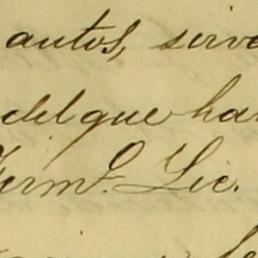 autos, serv
del que ha
Firmo. Lic.